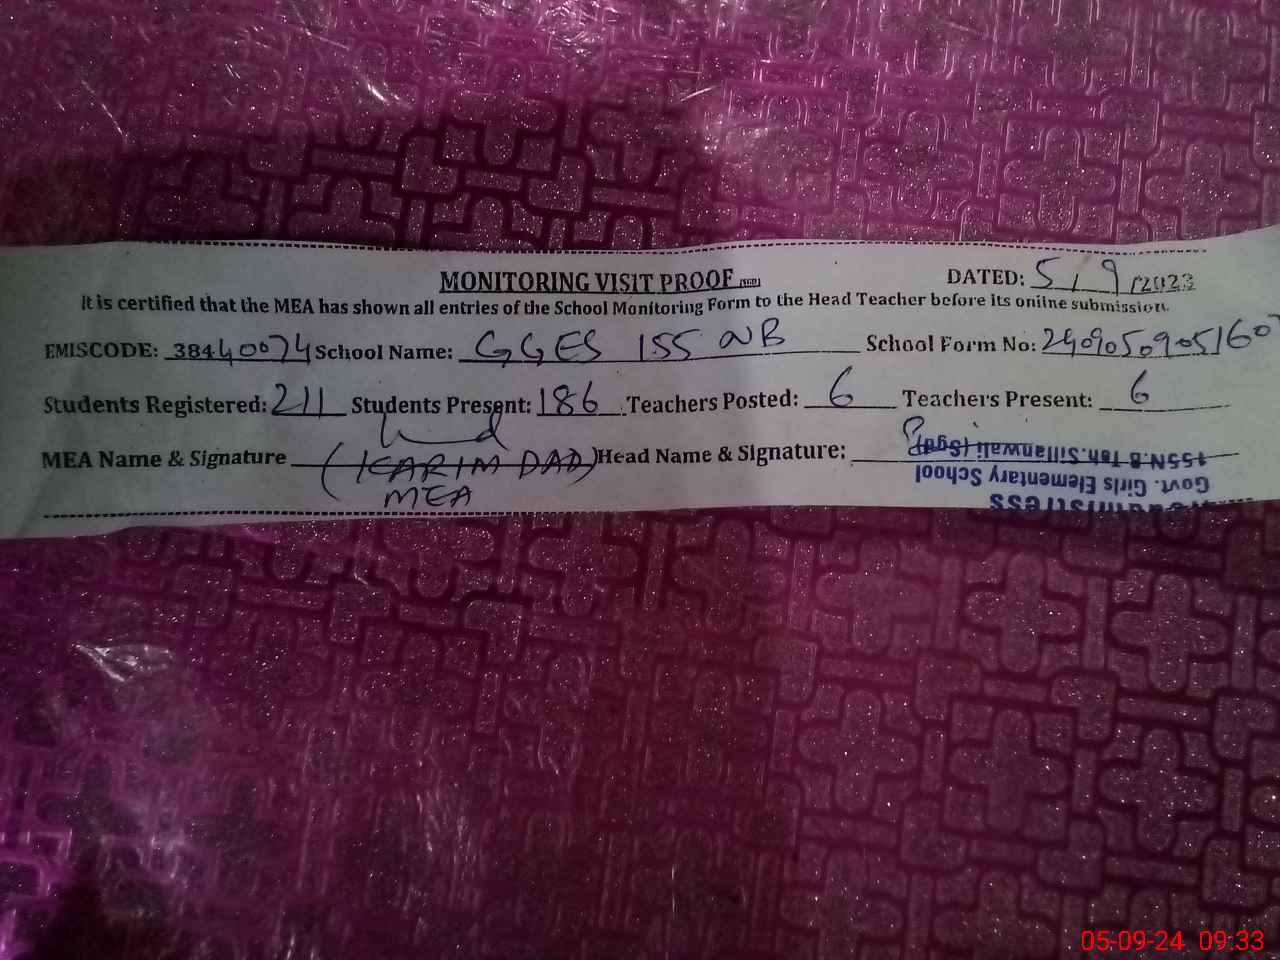 MONITORING VISIT PROOF (SGD) DATED: 5/9/2023
It is certified that the MEA has shown all entries of the School Monitoring Form to the Head Teacher before its online submission.
EMISCODE: 38440074 School Name: GGES 155 NB School Form No:
Students Registered: 211 Students Present: 186 Teachers Posted: 6 Teachers Present: 6
MEA Name & Signature (KARIM DAD) Head Name & Signature:
MEA
Govt. Girls Elementary School
155N.B Teh. Sillanwali (Sgd)
05-09-24 09:33